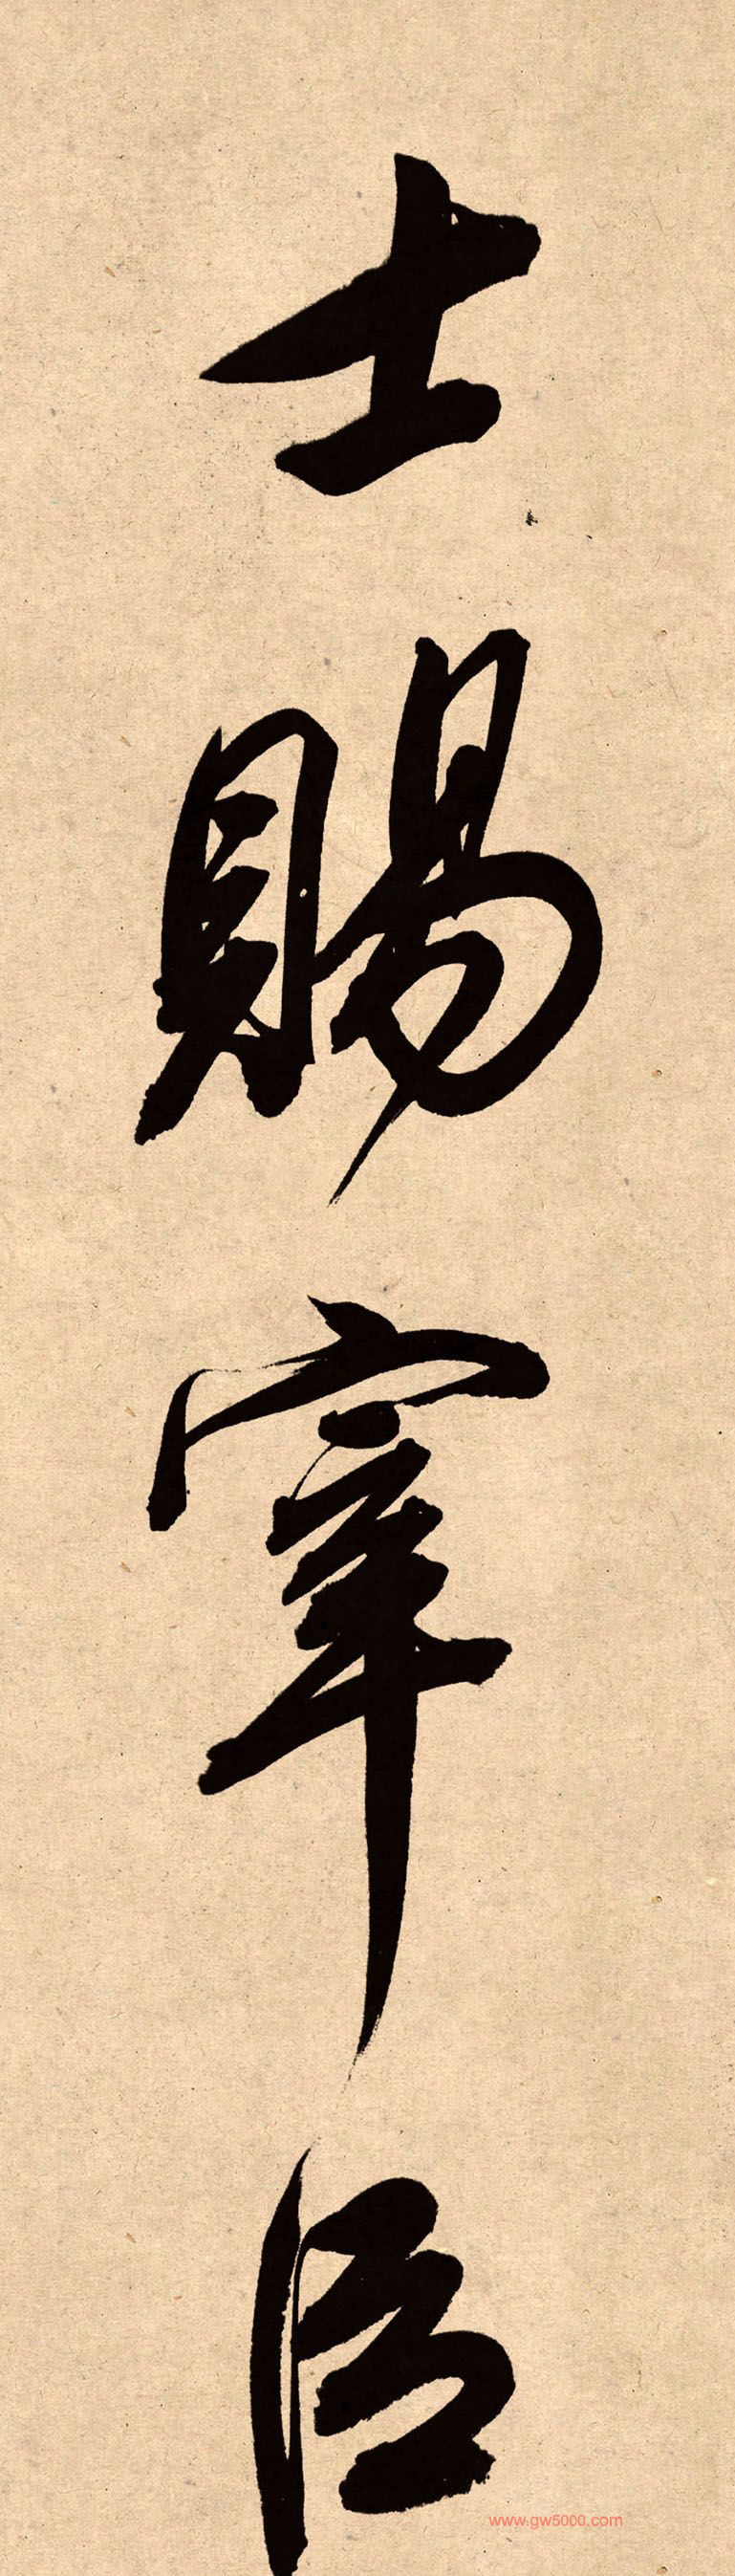 士賜宰臣
www.gw5000.com